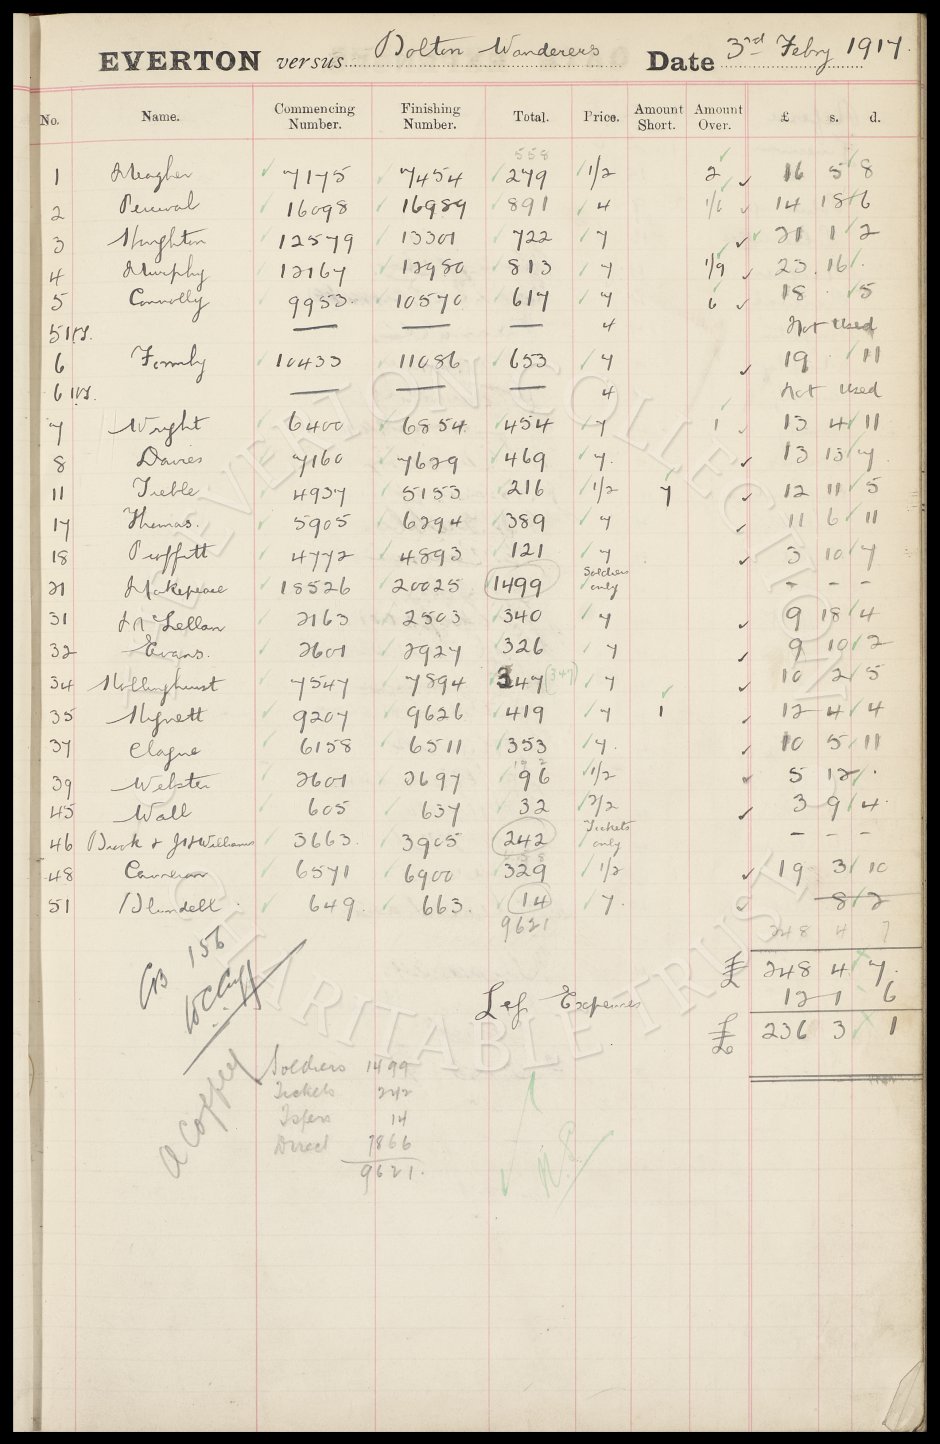 EVERTON versus Bolton Wanderers Date 3rd Febry 1917.
No. Name. Commencing Number. Finishing Number. Total. Price. Amount Short. Amount Over. £ s. d.
558
1 Meagher 7175 7454 279 1/2 2 16 5 8
2 Percival 16098 16989 891 4 1/6 14 18 6
3 Houghton 12579 13301 722 7 21 1 2
4 Murphy 12167 12980 813 7 1/9 23 16 .
5 Connolly 9953 10570 617 7 6 18 . 5
5 Hf. — — — 4 Not Used
6 Formby 10433 11086 653 7 19 . 11
6 Hf. — — — 4 Not Used
7 Wright 6400 6854 454 7 1 13 4 11
8 Davies 7160 7629 469 7 13 13 7
11 Treble 4937 5153 216 1/2 7 12 11 5
17 Thomas. 5905 6294 389 7 11 6 11
18 Proffitt 4772 4893 121 7 3 10 7
21 Makepeace 18526 20025 1499 Soldiers only - - -
31 McLellan 2163 2503 340 7 9 18 4
32 Evans. 2601 2927 326 7 9 10 2
34 Hollinghurst 7547 7894 347 (347) 7 10 2 5
35 Mynett 9207 9626 419 7 1 12 4 4
37 Clague 6158 6511 353 7 10 5 11
192
39 Webster 2601 2697 96 1/2 5 12 .
45 Wall 605 637 32 2/2 3 9 4
46 Brook & JH Williams 3663 3905 242 Tickets only - - -
658
48 Cameron 6571 6900 329 1/2 19 3 10
51 Blundell 649 663 14 7 8 2
9621
248 4 7
CB 156
£ 248 4 7
W C Cuff
Less Expenses 12 1 6
£ 236 3 1
A Coffey
Soldiers 1499
Tickets 242
Tsfers 14
Direct 7866
9621
EVERTON COLLECTION
CHARITABLE TRUST